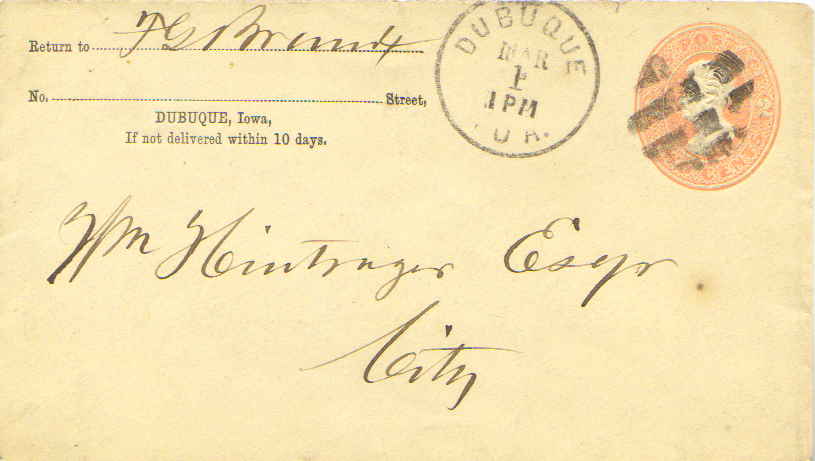 Return to F G Brandt
No. Street,
DUBUQUE, Iowa,
If not delivered within 10 days.
DUBUQUE
MAR
1
1 PM
IOA.
POSTAGE
2
CENTS
Wm Hintrager Esqr
City